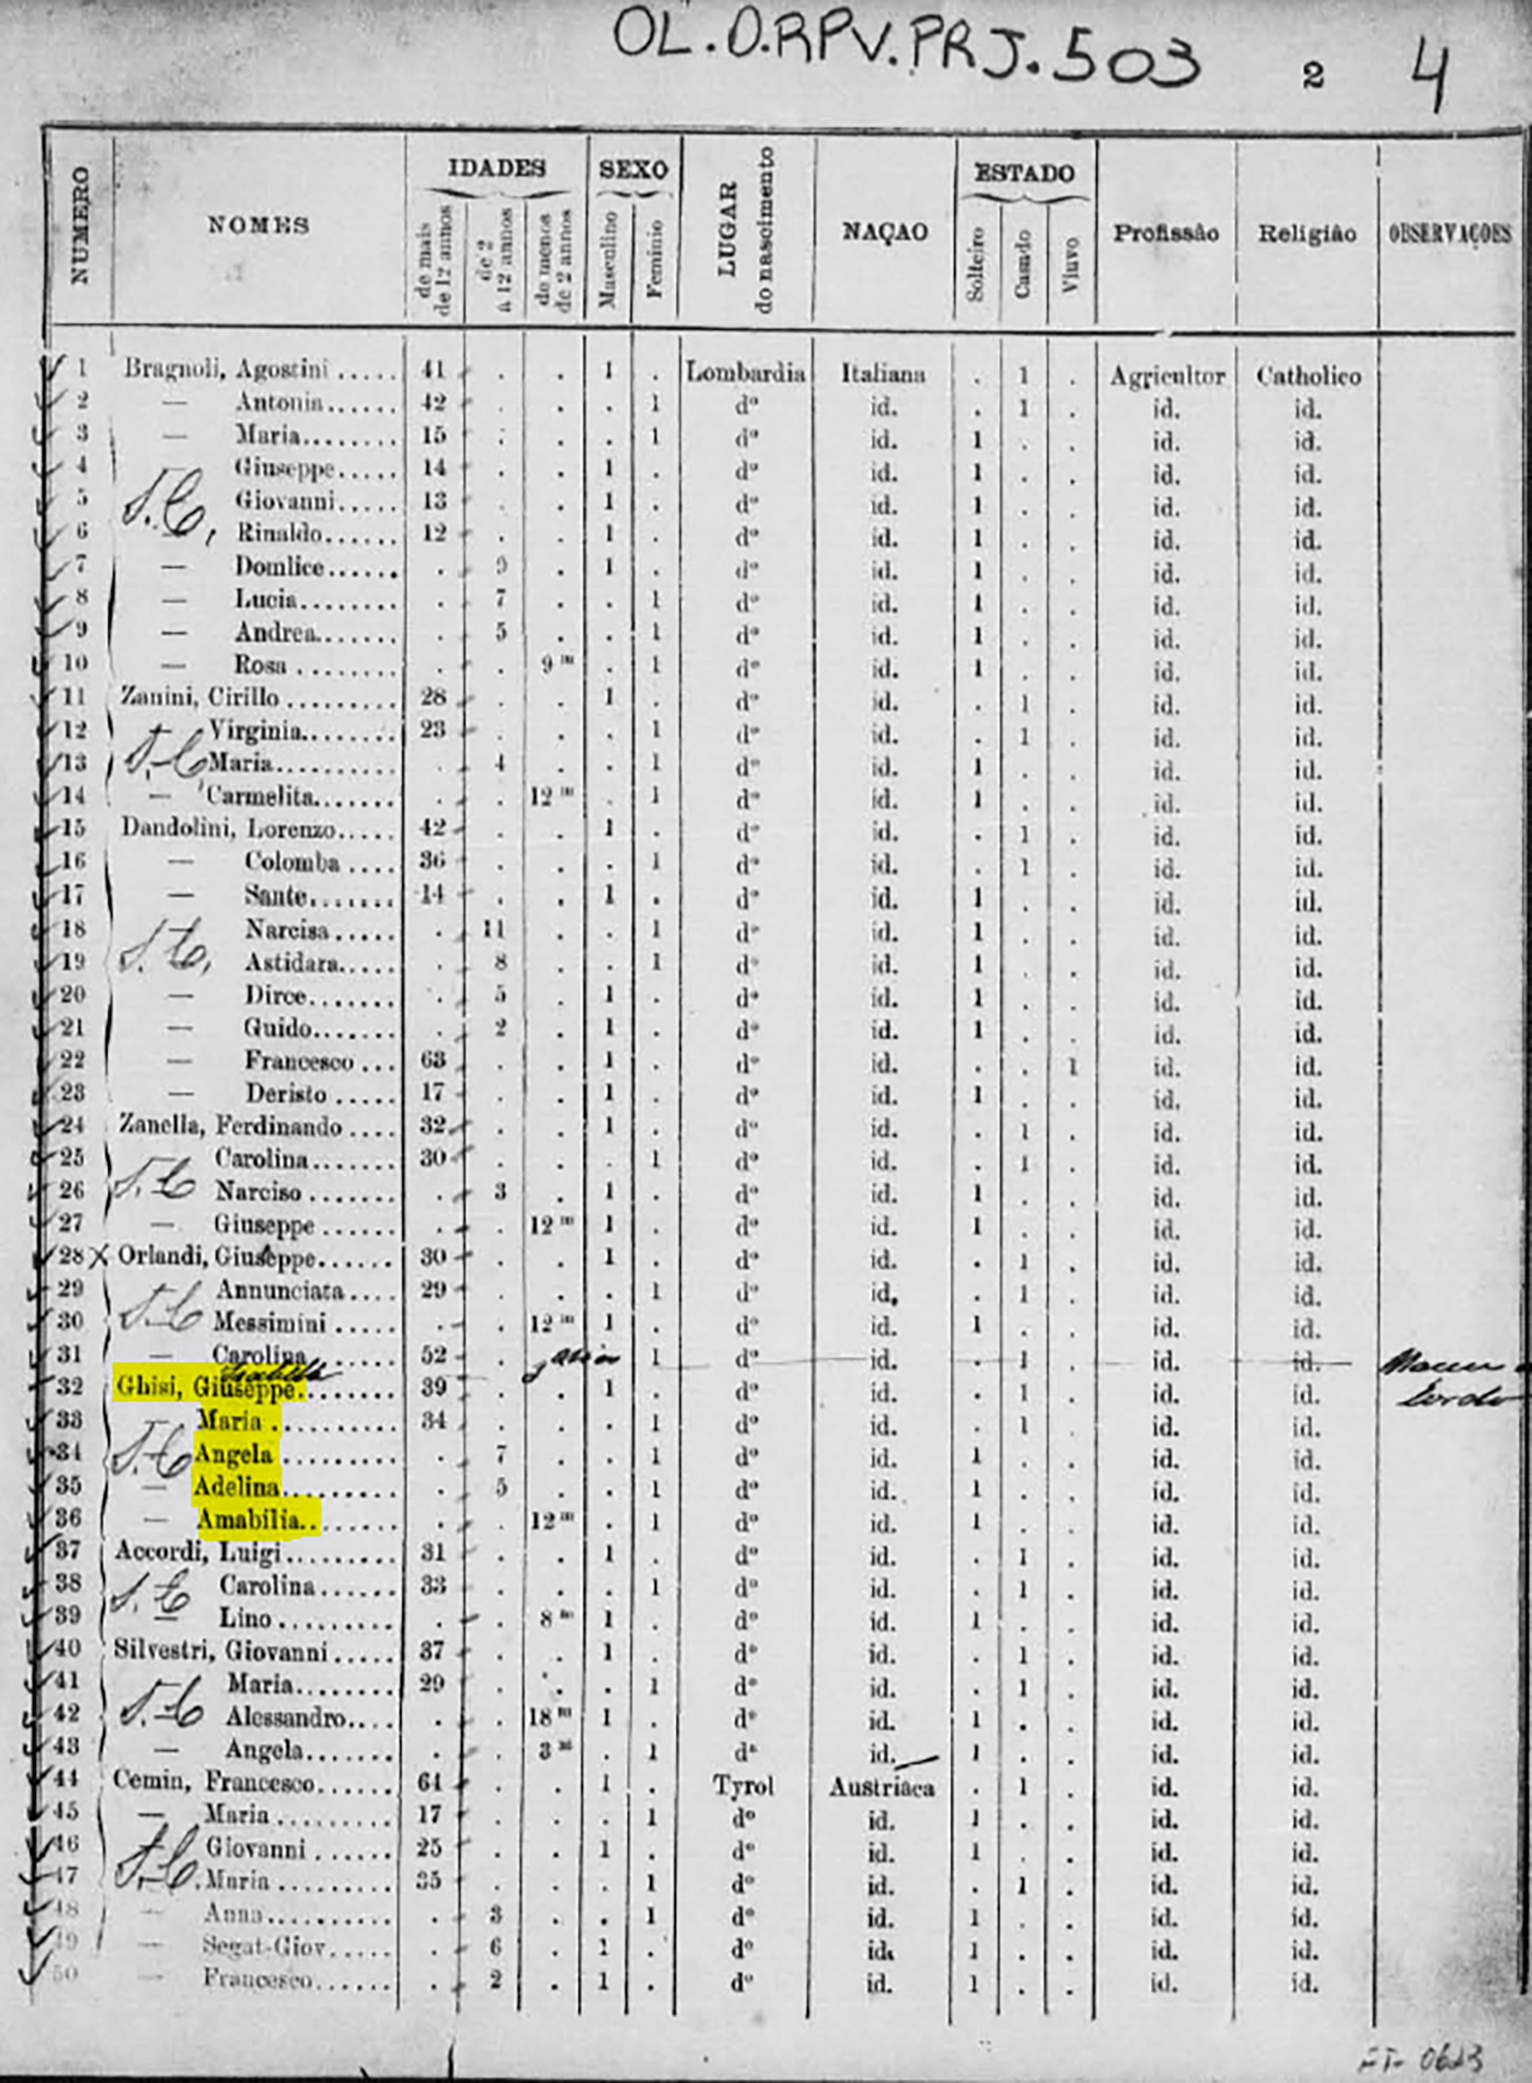 OL.O.RPV.PRJ.503 2 4
NUMERO NOMES IDADES SEXO LUGAR do nascimento NAÇAO ESTADO Profissão Religião OBSERVAÇÕES
de mais de 12 annos de 2 a 12 annos de menos de 2 annos Masculino Feminio Solteiro Casado Viuvo
1 Bragnoli, Agostini ..... 41 . . 1 . Lombardia Italiana . 1 . Agricultor Catholico
2 — Antonia...... 42 . . . 1 dº id. . 1 . id. id.
3 — Maria........ 15 . . . 1 dº id. 1 . . id. id.
4 — Giuseppe..... 14 . . 1 . dº id. 1 . . id. id.
5 Giovanni..... 13 . . 1 . dº id. 1 . . id. id.
6 — Rinaldo...... 12 . . 1 . dº id. 1 . . id. id.
7 — Domlice...... . 9 . 1 . dº id. 1 . . id. id.
8 — Lucia........ . 7 . . 1 dº id. 1 . . id. id.
9 — Andrea....... . 5 . . 1 dº id. 1 . . id. id.
10 — Rosa ........ . . 9 m . 1 dº id. 1 . . id. id.
11 Zanini, Cirillo ......... 28 . . 1 . dº id. . 1 . id. id.
12 — Virginia........ 23 . . . 1 dº id. . 1 . id. id.
13 — Maria.......... . 4 . . 1 dº id. 1 . . id. id.
14 — Carmelita....... . . 12 m . 1 dº id. 1 . . id. id.
15 Dandolini, Lorenzo..... 42 . . 1 . dº id. . 1 . id. id.
16 — Colomba .... 36 . . . 1 dº id. . 1 . id. id.
17 — Sante....... 14 . . 1 . dº id. 1 . . id. id.
18 Narcisa ..... . 11 . . 1 dº id. 1 . . id. id.
19 Astidara..... . 8 . . 1 dº id. 1 . . id. id.
20 — Dirce....... . 5 . 1 . dº id. 1 . . id. id.
21 — Guido....... . 2 . 1 . dº id. 1 . . id. id.
22 — Francesco ... 63 . . 1 . dº id. . . 1 id. id.
23 — Deristo ..... 17 . . 1 . dº id. 1 . . id. id.
24 Zanella, Ferdinando .... 32 . . 1 . dº id. . 1 . id. id.
25 Carolina....... 30 . . . 1 dº id. . 1 . id. id.
26 Narciso ....... . 3 . 1 . dº id. 1 . . id. id.
27 — Giuseppe ...... . . 12 m 1 . dº id. 1 . . id. id.
28 X Orlandi, Giuseppe...... 30 . . 1 . dº id. . 1 . id. id.
29 Annunciata.... 29 . . . 1 dº id. . 1 . id. id.
30 Messimini ..... . . 12 m 1 . dº id. 1 . . id. id.
31 — Carolina....... 52 . . 1 dº id. . 1 . id. id.
32 Ghisi, Giuseppe......... 39 . . 1 . dº id. . 1 . id. id.
33 Maria .......... 34 . . . 1 dº id. . 1 . id. id.
34 Angela ......... . 7 . . 1 dº id. 1 . . id. id.
35 — Adelina......... . 5 . . 1 dº id. 1 . . id. id.
36 — Amabilia........ . . 12 m . 1 dº id. 1 . . id. id.
37 Accordi, Luigi......... 31 . . 1 . dº id. . 1 . id. id.
38 Carolina...... 33 . . . 1 dº id. . 1 . id. id.
39 — Lino ......... . . 8 m 1 . dº id. 1 . . id. id.
40 Silvestri, Giovanni..... 37 . . 1 . dº id. . 1 . id. id.
41 Maria........ 29 . . . 1 dº id. . 1 . id. id.
42 Alessandro.... . . 18 m 1 . dº id. 1 . . id. id.
43 — Angela....... . . 3 m . 1 dº id. 1 . . id. id.
44 Cemin, Francesco...... 64 . . 1 . Tyrol Austriaca . 1 . id. id.
45 — Maria ......... 17 . . . 1 dº id. 1 . . id. id.
46 Giovanni ...... 25 . . 1 . dº id. 1 . . id. id.
47 Maria ......... 35 . . . 1 dº id. . 1 . id. id.
48 — Anna.......... . 3 . . 1 dº id. 1 . . id. id.
49 — Segat-Giov..... . 6 . 1 . dº id. 1 . . id. id.
50 — Francesco...... . 2 . 1 . dº id. 1 . . id. id.